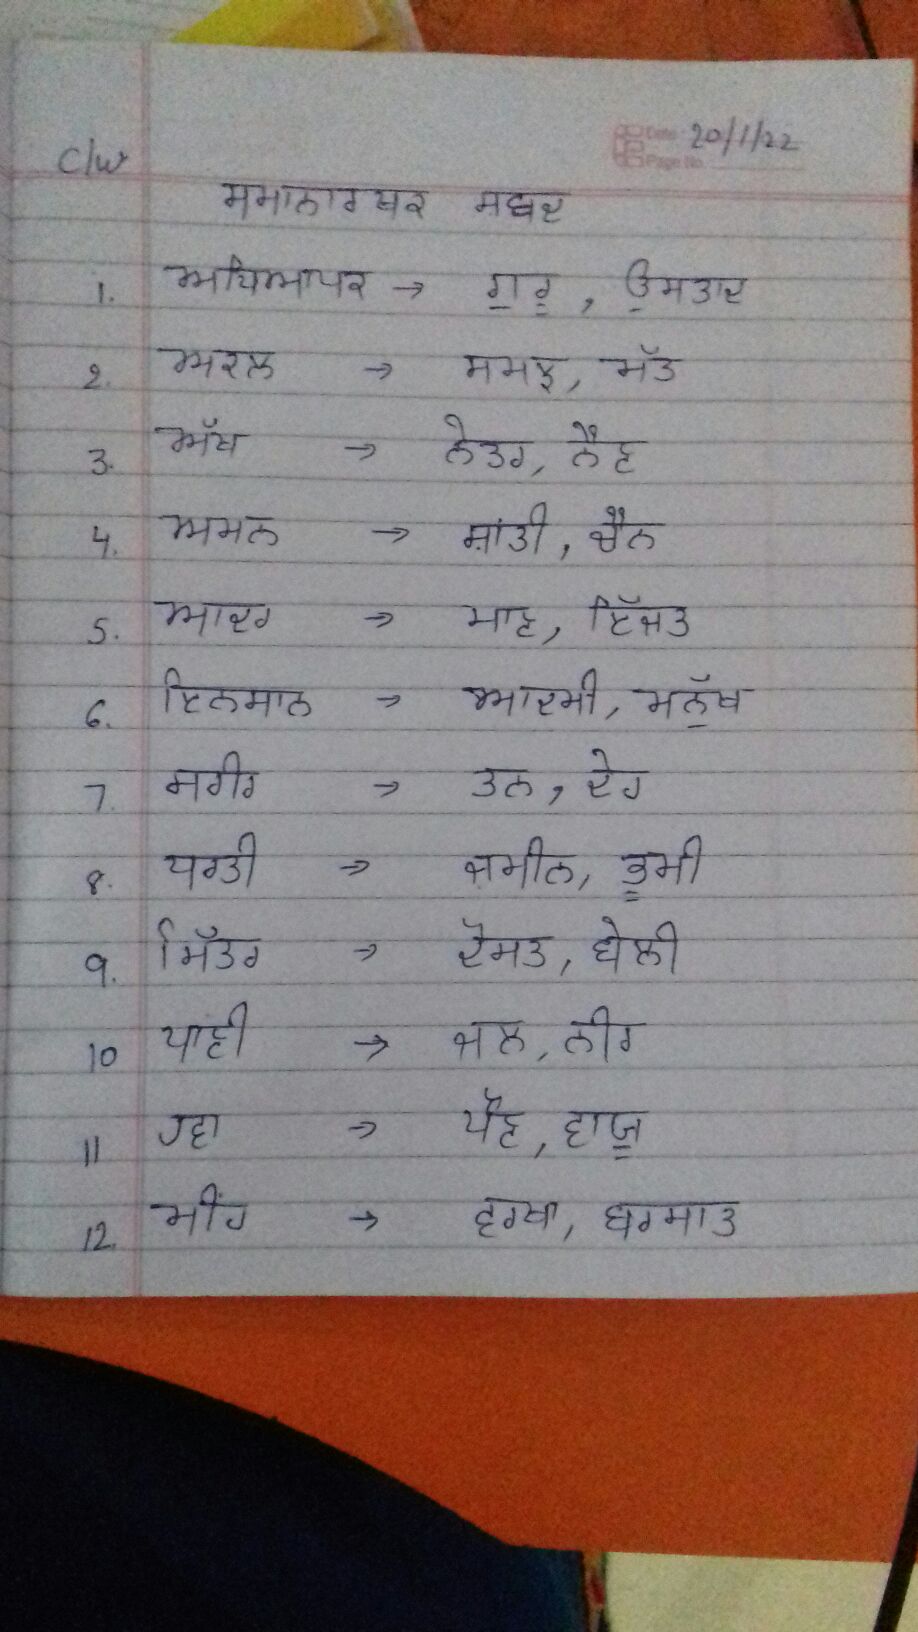 Date 20/1/22
Page No.
C/W
ਸਮਾਨਾਰਥਕ ਸ਼ਬਦ
1. ਅਧਿਆਪਕ → ਗੁਰੂ, ਉਸਤਾਦ
2. ਅਕਲ → ਸਮਝ, ਮੱਤ
3. ਅੱਖ → ਨੇਤਰ, ਨੈਣ
4. ਅਮਨ → ਸ਼ਾਂਤੀ, ਚੈਨ
5. ਆਦਰ → ਮਾਣ, ਇੱਜਤ
6. ਇਨਸਾਨ → ਆਦਮੀ, ਮਨੁੱਖ
7. ਸਰੀਰ → ਤਨ, ਦੇਹ
8. ਧਰਤੀ → ਜ਼ਮੀਨ, ਭੂਮੀ
9. ਮਿੱਤਰ → ਦੋਸਤ, ਬੇਲੀ
10 ਪਾਣੀ → ਜਲ, ਨੀਰ
11 ਹਵਾ → ਪੌਣ, ਵਾਯੂ
12. ਮੀਂਹ → ਵਰਖਾ, ਬਰਸਾਤ